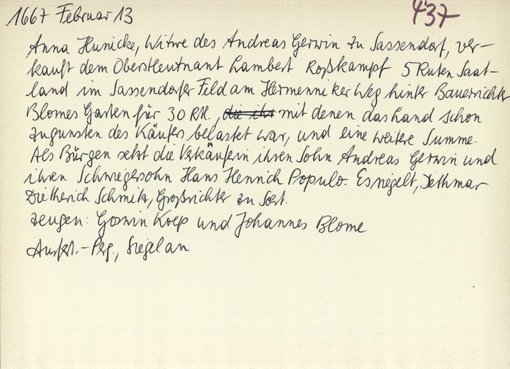 1667 Februar 13
437
Anna Hunicke, Witwe des Andreas Gerwin zu Sassendorf, ver-
kauft dem Oberstleutnant Lambert Roßkampf 5 Ruten Saat-
land im Sassendorfer Feld am Hermenniker Weg hinter Bauerrichter
Blomes Garten für 30 Rtl., die ihr mit denen das Land schon
zugunsten des Käufers belastet war, und eine weitere Summe.
Als Bürgen setzt die Verkäuferin ihren Sohn Andreas Gerwin und
ihren Schwiegersohn Hans Henrich Populo. Es siegelt, Dethmar
Dietherich Schmitz, Großrichter zu Soest.
Zeugen: Goswin Koep und Johannes Blome
Ausfert.-Perg., Siegel an